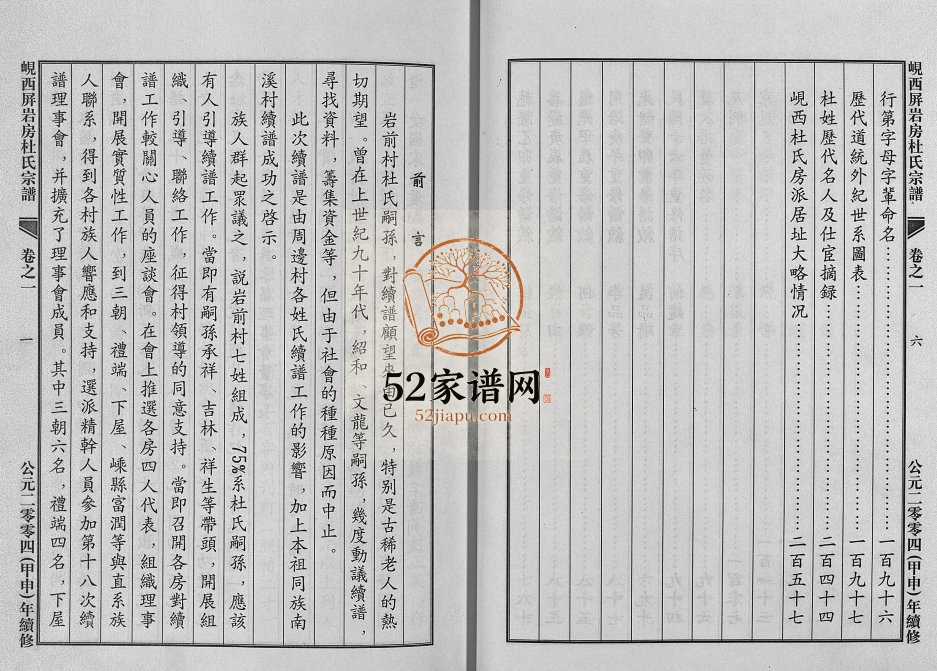 峴西屏岩房杜氏宗譜
卷之一
六
公元二零零四(甲申)年續修
行第字母字輩命名……………………一百九十六
歷代道統外紀世系圖表……………………一百九十七
杜姓歷代名人及仕宦摘録……………………二百四十四
峴西杜氏房派居址大略情况……………………二百五十七
前言
岩前村杜氏嗣孫，對續譜願望來由已久，特别是古稀老人的熱
切期望。曾在上世紀九十年代，紹和、文龍等嗣孫，幾度動議續譜，
尋找資料，籌集資金等，但由于社會的種種原因而中止。
此次續譜是由周邊村各姓氏續譜工作的影響，加上本祖同族南
溪村續譜成功之啓示。
族人群起眾議之，説岩前村七姓組成，75%系杜氏嗣孫，應該
有人引導續譜工作。當即有嗣孫承祥、吉林、祥生等帶頭，開展組
織、引導、聯絡工作，征得村領導的同意支持。當即召開各房對續
譜工作較關心人員的座談會。在會上推選各房四人代表，組織理事
會，開展實質性工作，到三朝、禮端、下屋、嵊縣富潤等與直系族
人聯系，得到各村族人響應和支持，選派精幹人員參加第十八次續
譜理事會，并擴充了理事會成員。其中三朝六名，禮端四名，下屋
峴西屏岩房杜氏宗譜
卷之一
一
公元二零零四(甲申)年續修
52家谱网
52jiapu.com